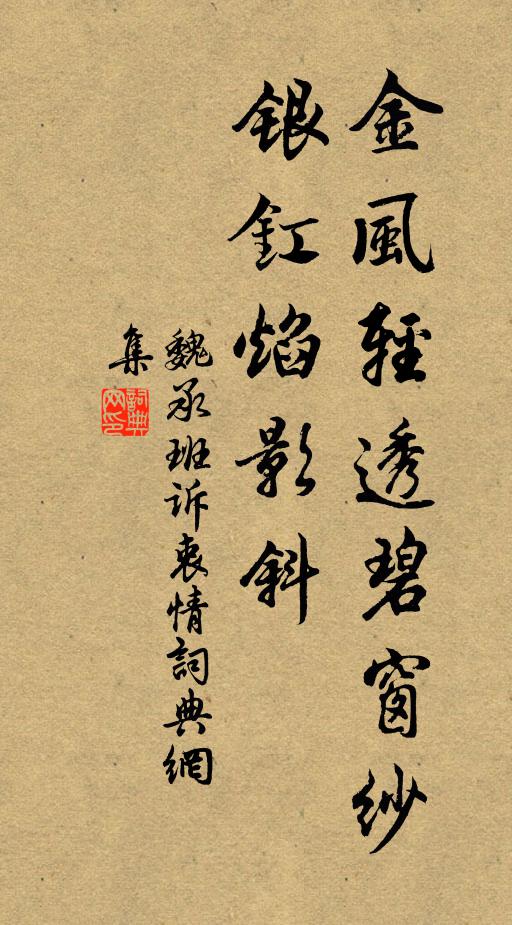 金風輕透碧窗紗
銀釭焰影斜
魏承班诉衷情詞典網
集
詞典网印